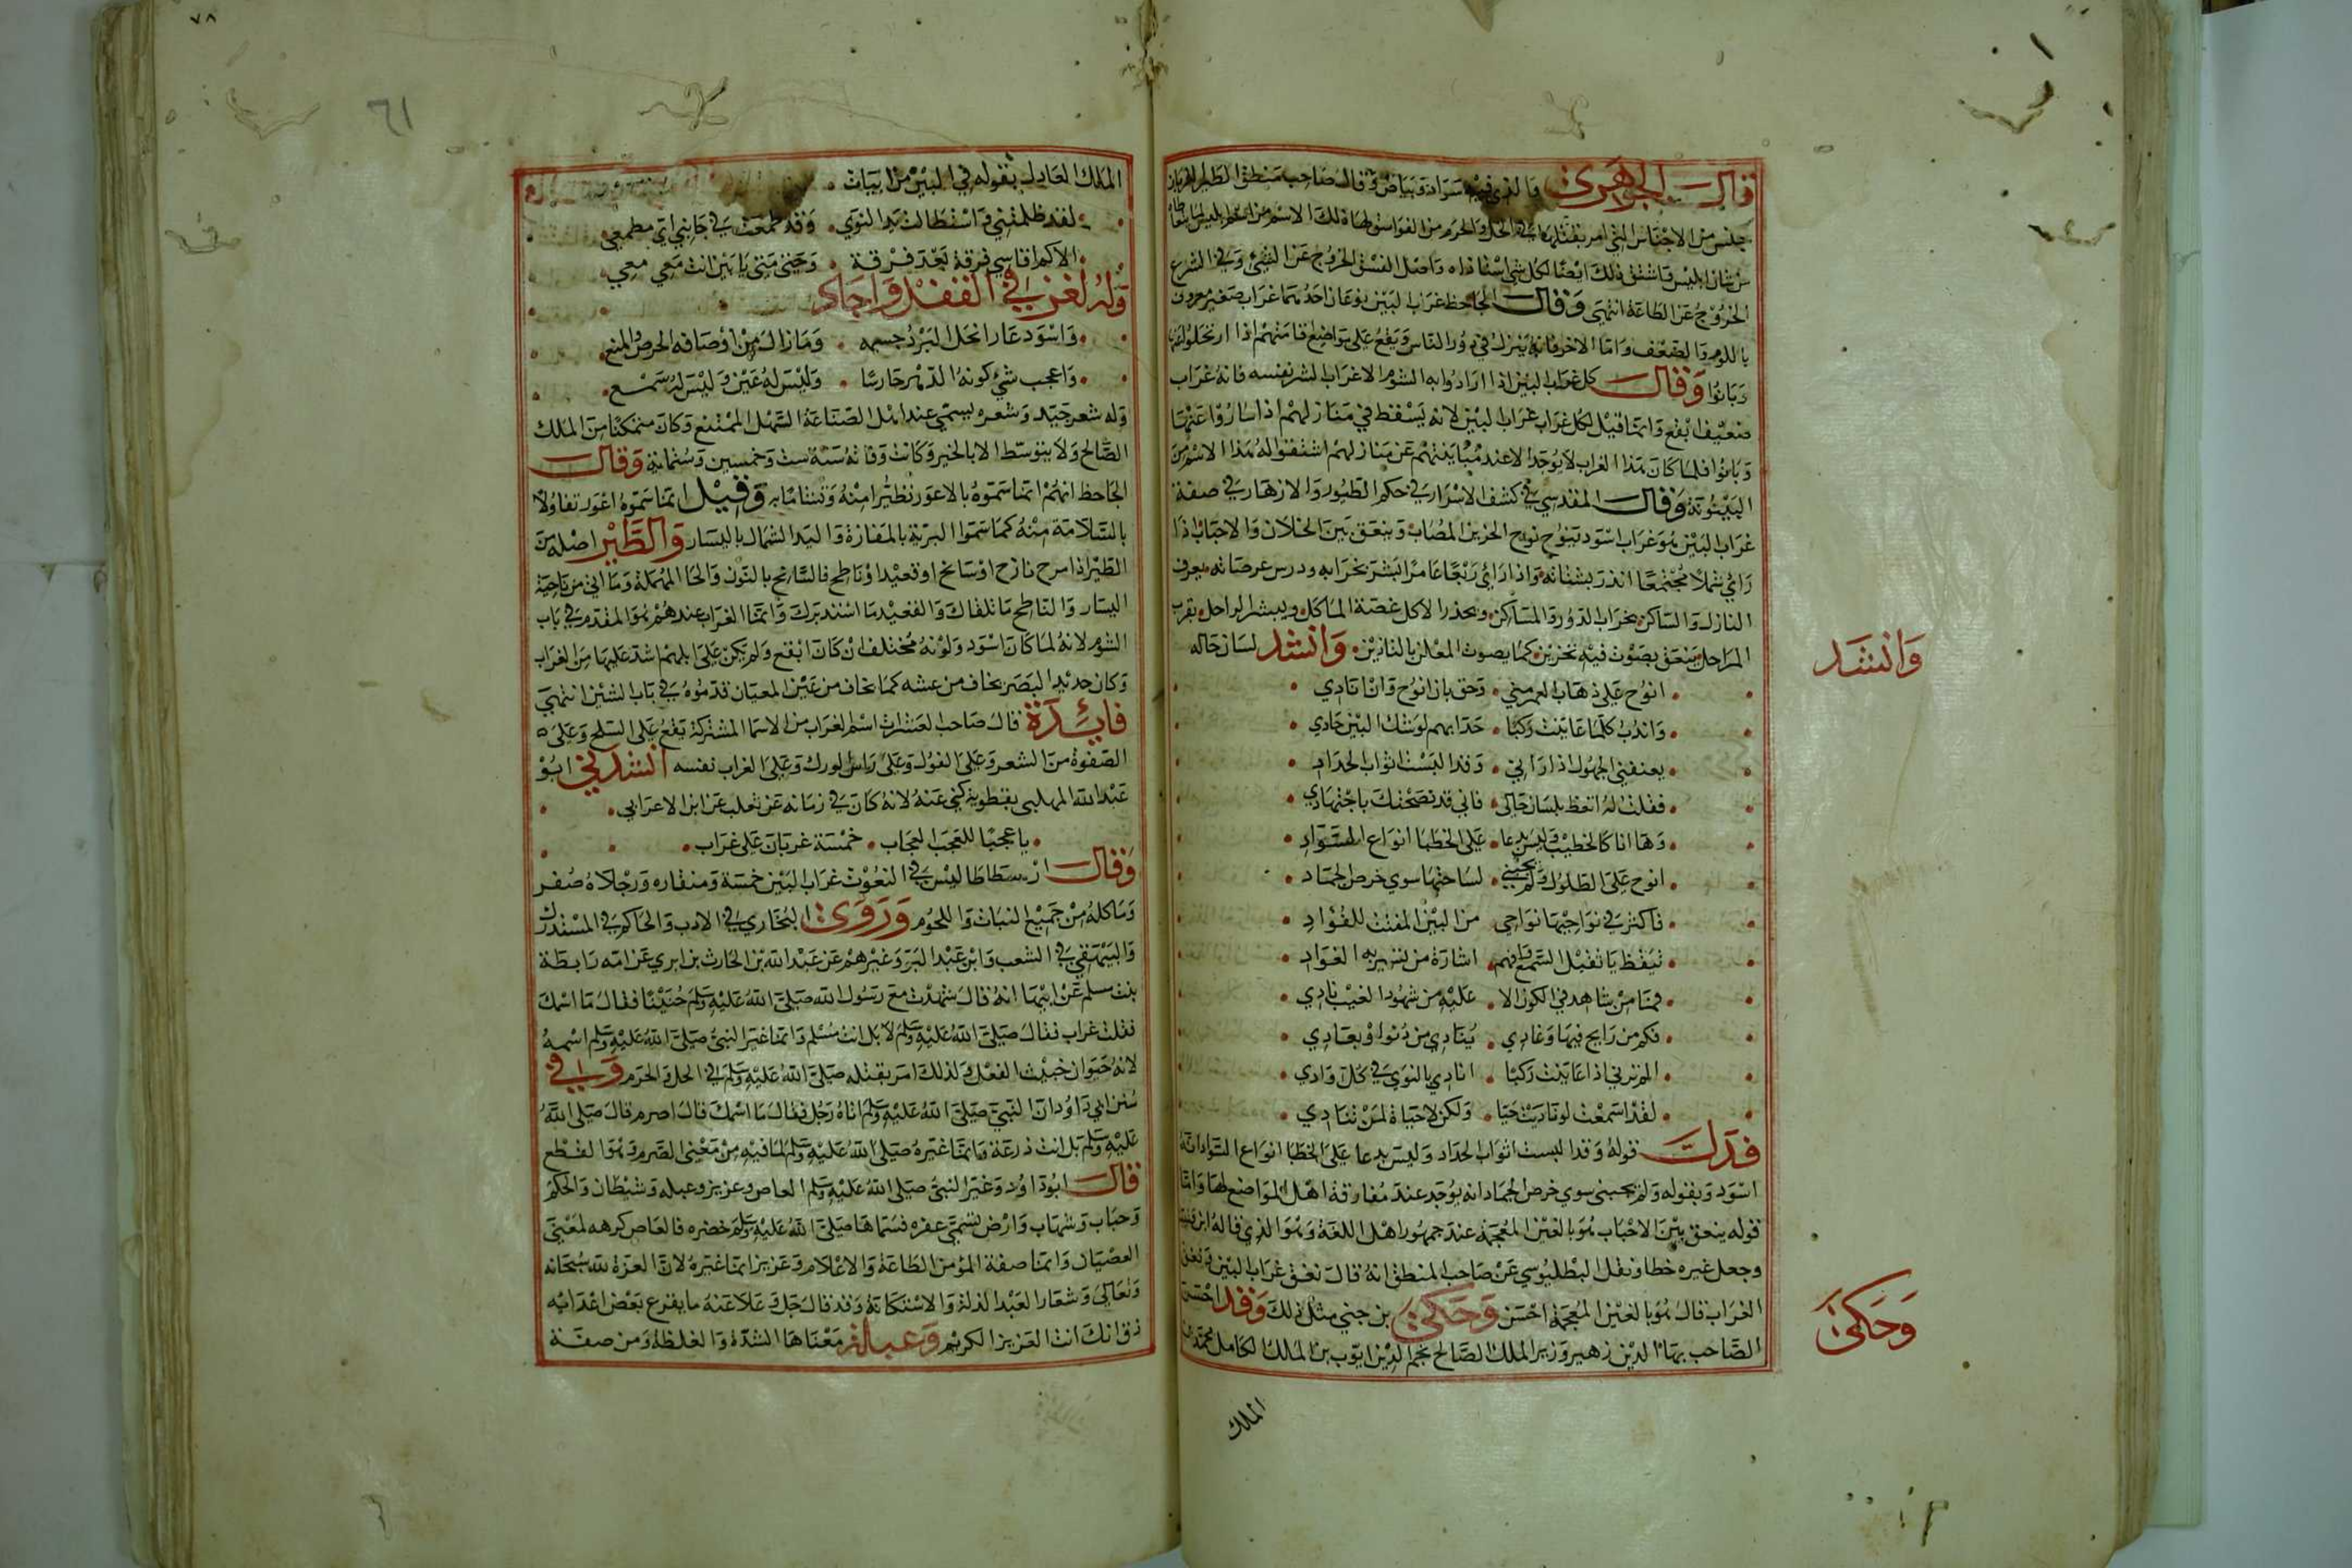 قال الجوهري والذي فيه سواد وبياض وقال صاحب منطق الطير الغربان
جنس من الاجناس التي امر بقتلها في الحل والحرم من الفواسق لها ذلك الاسم من ابليس
من شان ابليس واشتق ذلك ايضا لكل شي اشتد اذاه واصل الفسق الخروج عن الشيء وفي الشرع
الخروج عن الطاعة انتهى وقال الجاحظ غراب البين نوعان احدهما غراب صغير معروف
باللوم والضعف واما الاخر فانه ينزل في دور الناس ويقع على مواضع اقامتهم اذا ارتحلوا عنها
وبانوا وقال كل غراب البين اذا ارادوا به الشوم الاغراب لشر نفسه فانه غراب
ضعيف ابقع وانما قيل لكل غراب غراب البين لانه يسقط في منازلهم اذا ساروا عنها
وبانوا فلما كان هذا الغراب لا يوجد الا عند مباينتهم عن منازلهم اشتقوا له هذا الاسم من
البينونة وقال المقدسي في كشف الاسرار في حكم الطيور والازهار في صفة
غراب البين هو غراب اسود ينوح نوح الحزين المصاب وينعق بين الخلان والاحباب اذا
راي شملا مجتمعا انذر بشتاته واذا راي ربعا عامرا بشر بخرابه ودرس عرصاته يعرف
النازل والساكن بخراب الدور والمساكن ويحذر الاكل غصة الماكل ويبشر الراحل بقرب
المراحل ينعق بصوت فيه تحزين كما يصوت المعلن بالتاذين وانشد لسان حاله
انوح على ذهاب العمر مني وحق بان انوح وان انادي
واندب كلما عاينت ركبا حدا بهم لوشك البين حادي
يعنفني الجهول اذا راني وقد البست اثواب الحداد
فقلت له اتعظ بلسان حالي فاني قد نصحتك باجتهادي
وها انا كالخطيب وليس بدعا على الخطبا اثواب السواد
انوح على الطلول ولم يجبني لساحتها سوي خرص الجماد
فاكثر في نواحيها نواحي من البين المفتت للفؤاد
تيقظ يا ثقيل السمع وافهم اشارة من تسير به الغواد
فما من شاهد في الكون الا عليه من شهود الغيب بادي
فكم من رايح فيها وغادي ينادي من دنو او بعادي
الم ترني اذا عاينت ركبا انادي بالنوي في كل وادي
لقد اسمعت لو ناديت حيا ولكن لا حياة لمن تنادي
فدل قوله وقد البست اثواب الحداد وليس بدعا على الخطبا انواع السواد انه
اسود وبقوله ولم يجبني سوي خرص الجماد انه يوجد عند مفارقة اهل المواضع لها واما
قوله ينعق بين الاحباب هو بالغين المعجمة عند جمهور اهل اللغة وهو الذي قاله ابن قتيبة
وجعل غيره خطا ونقل البطليوسي عن صاحب المنطق انه قال نغق غراب البين ونعق
الغراب قال هو بالغين المعجمة احسن وحكي بن جني مثل ذلك وقد احسن
الصاحب بها الدين زهير وزير الملك الصالح نجم الدين ايوب بن الملك الكامل محمد بن
الملك
وانشد
وحكى
٧٨
٦١
الملك العادل بقوله في البين من ابيات
لقد ظلمتني واستطالت يد النوي وقد طمعت في جانبي اي مطمع
الاكم اقاسي فرقة بعد فرقة وحتى متى يا بين انت معي معي
وله لغز في القفل واجاد
واسود عار انحل البرد جسمه وما زال من اوصافه الحرص والمنع
واعجب شي كونه الدهر حارسا وليس له عين وليس له سمع
وله شعر جيد وشعره يسمي عند اهل الصناعة السهل الممتنع وكان متمكنا من الملك
الصالح ولا يتوسط الا بالخير وكانت وفاته سنة ست وخمسين وستماية وقال
الجاحظ انهم انما سموه بالاعور تطيرا منه وتشاما به وقيل انما سموه اعور تفاولا
بالسلامة منه كما سموا البرية بالمفازة واليد الشمال باليسار والطير اصله من
الطير اذا مرح نازح او سانح او قعيد او ناطح فالسانح بالنون والحا المهملة وما اتى من ناحية
اليسار والناطح ما تلقاك والقعيد ما استدبرك وانما الغراب عندهم هو المقدم في باب
الشوم لانه لما كان اسود ولونه مختلف ان كان ابقع ولم يكن على ابلهم اشد عليها من الغراب
وكان حديد البصر يخاف من عشه كما يخاف من عين المعيان قدموه في باب الشين انتهى
فايدة قال صاحب العشرات اسم الغراب من الاسما المشتركة يقع على السلح وعلى
الصفوة من الشعر وعلى الغول وعلى راس الورك وعلى الغراب نفسه انشدني ابو
عبد الله المهلبي بقطويه كني عنه لانه كان في زمانه عن ثعلب عن ابن الاعرابي
يا عجبا للعجب العجاب خمسة غربان على غراب
وقال ارسطاطاليس في النعوت غراب البين خمسة ومنقاره ورجلاه صفر
وماكله من جميع النبات واللحوم وروى البخاري في الادب والحاكم في المستدرك
والبيهقي في الشعب وابن عبد البر وغيرهم عن عبد الله بن الحارث بن ابري عن امه رابطة
بنت مسلم عن ابيها انه قال شهدت مع رسول الله صلى الله عليه وسلم حنينا فقال ما اسمك
فقلت غراب فقال صلى الله عليه وسلم لا بل انت مسلم وانما غير النبي صلى الله عليه وسلم اسمه
لانه حيوان خبيث الفعل ولذلك امر بقتله صلى الله عليه وسلم في الحل والحرم وفي
سنن ابي داود ان النبي صلى الله عليه وسلم اتاه رجل فقال ما اسمك قال اصرم قال صلى الله
عليه وسلم بل انت زرعة وانما غيره صلى الله عليه وسلم لما فيه من معنى الصرم وهو القطع
قال ابو داود وغير النبي صلى الله عليه وسلم العاص وعزيز وعبلة وشيطان والحكم
وحباب وشهاب وارض تسمى عفره فسماها صلى الله عليه وسلم خضره فالعاص كرهه لمعنى
العصيان وانما صفة المؤمن الطاعة والاعلام وعزيز انما غيره لان العزة لله سبحانه
وتعالى وشعار العبد الذلة والاستكانة وقد قال جل وعلا عنه ما يقرع بعض اعدايه
ذق انك انت العزيز الكريم وعبلة معناها الشدة والغلظة ومن صفة